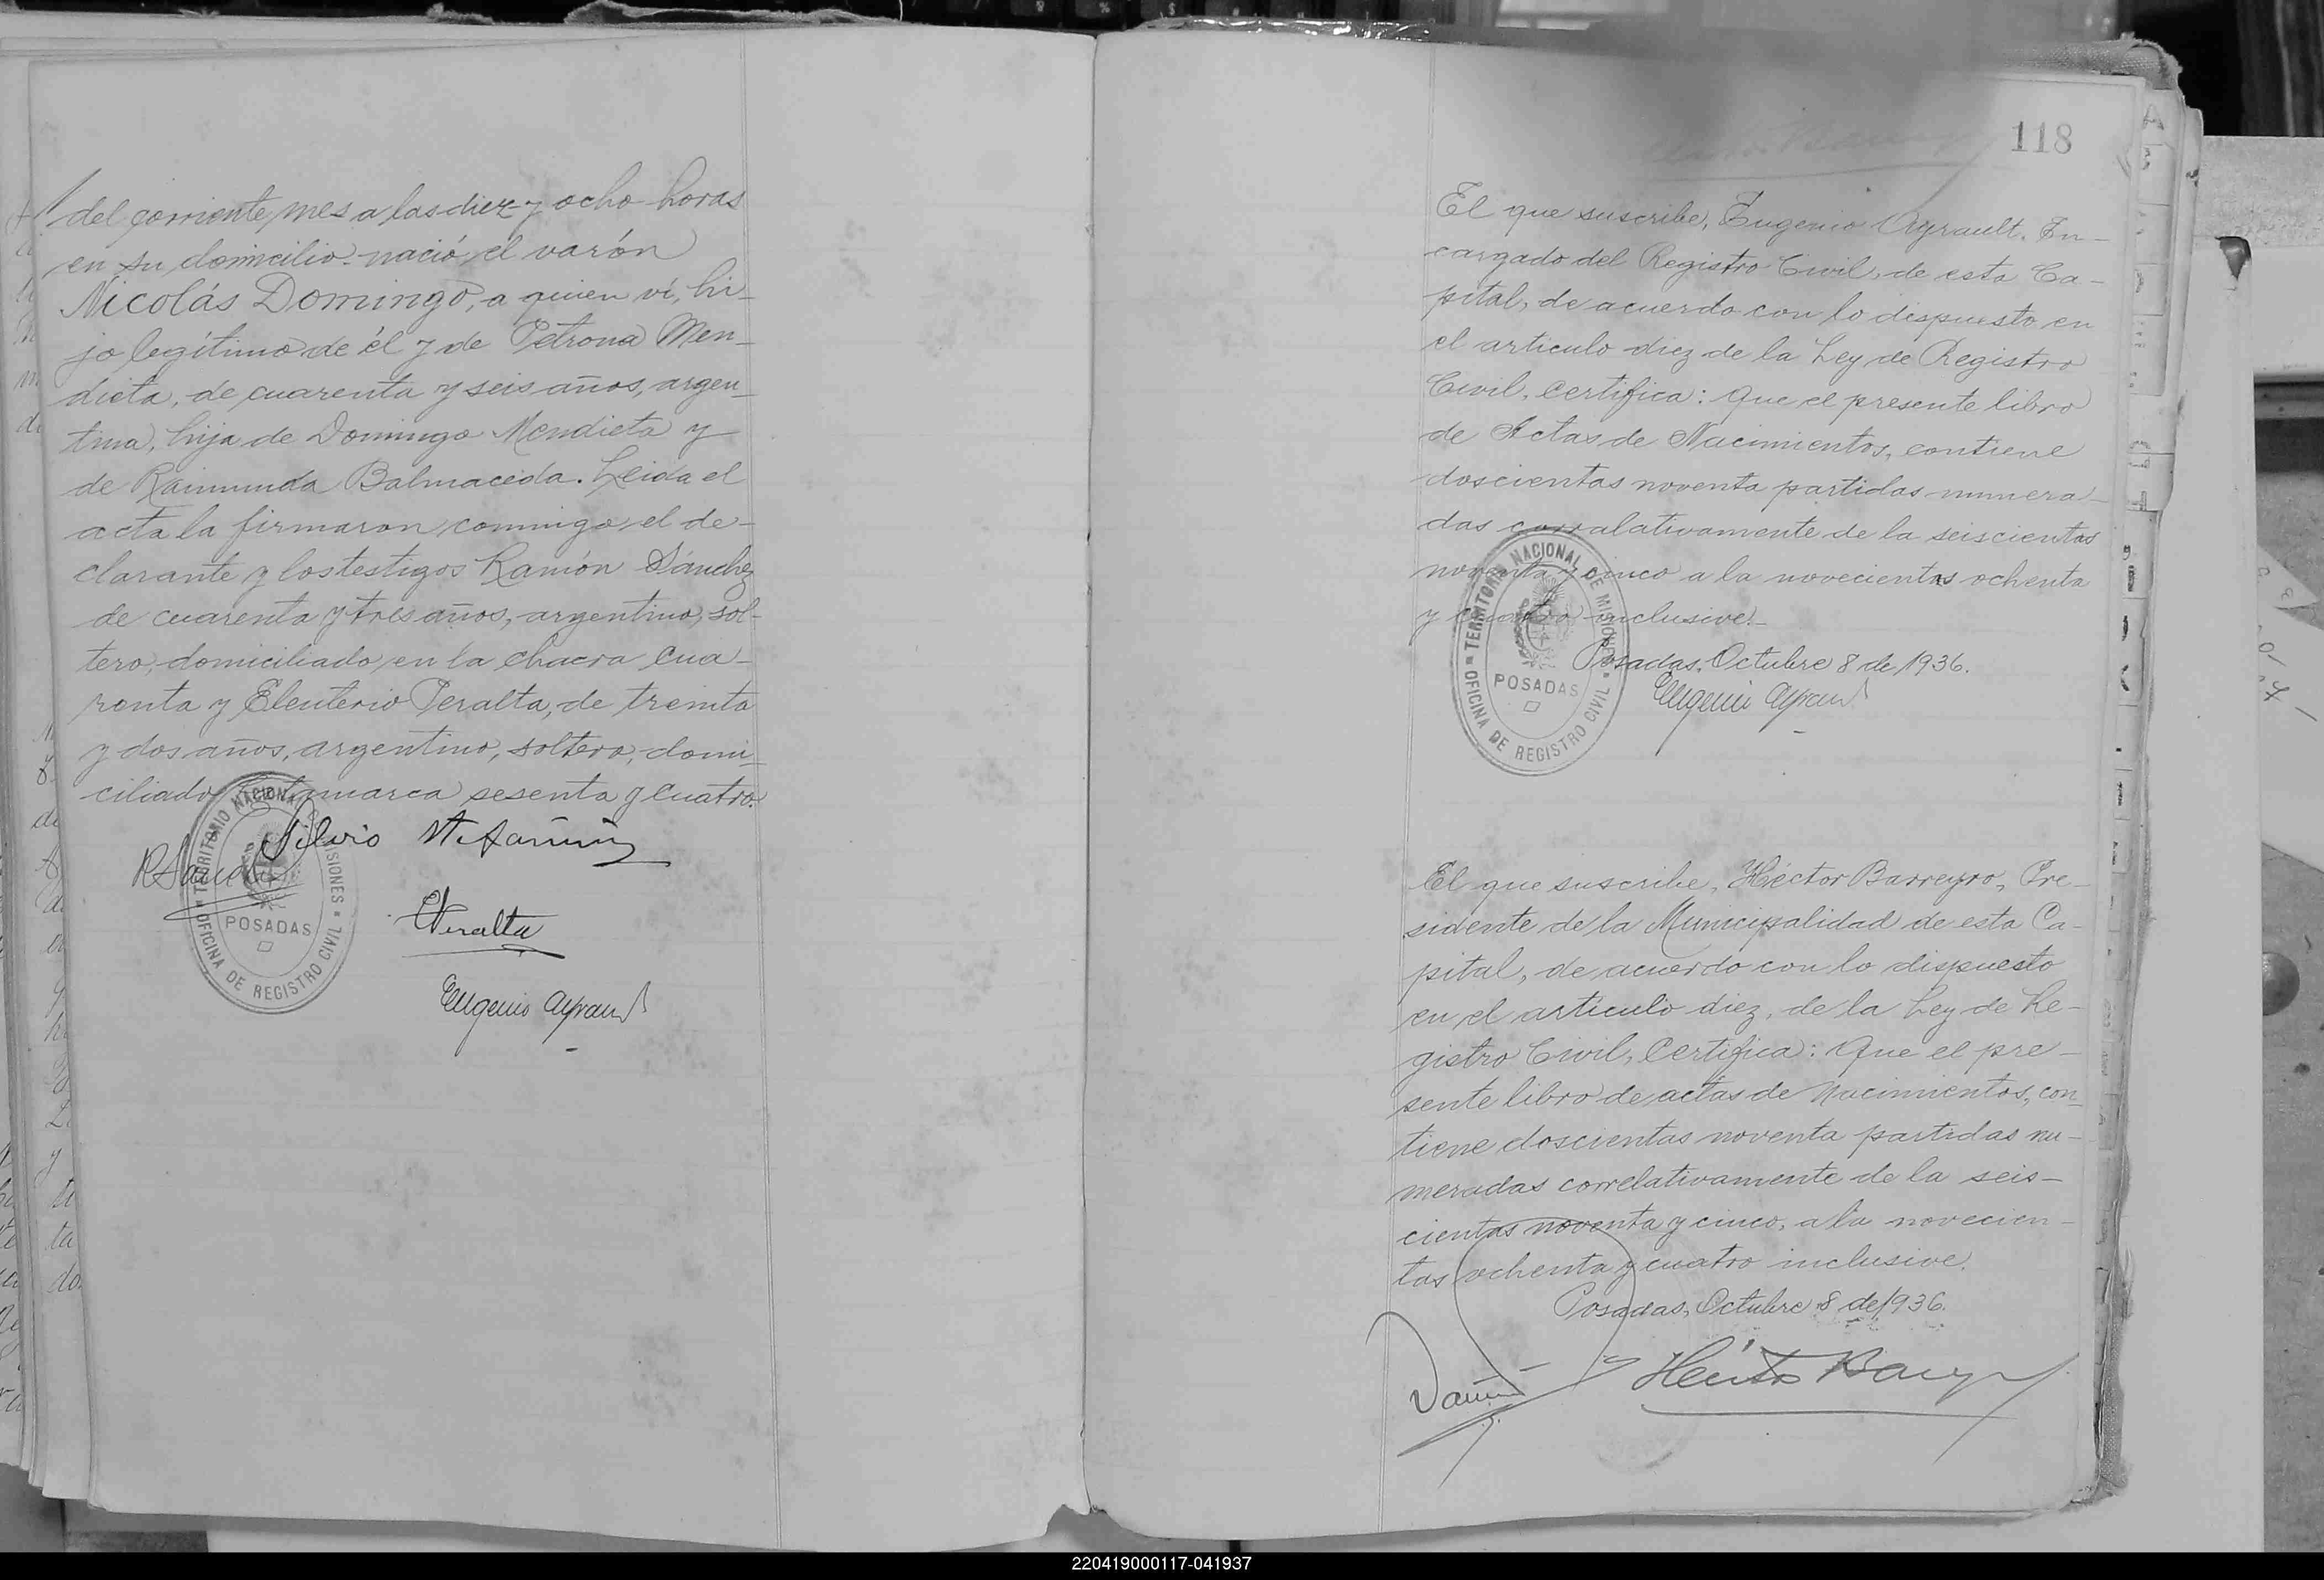 del corriente mes a las diez y ocho horas
en su domicilio nació el varón
Nicolás Domingo, a quien ví, hi-
jo legítimo de él y de Petrona Men-
dieta, de cuarenta y seis años, argen-
tina, hija de Domingo Mendieta y
de Raimunda Balmaceda. Leida el
acta la firmaron conmigo el de-
clarante y los testigos Ramón Sánchez
de cuarenta y tres años, argentino, sol-
tero, domiciliado en la chacra cua-
renta y Eleuterio Peralta, de treinta
y dos años, argentino, soltero, domi-
ciliado Catamarca sesenta y cuatro.
Silvio
EPeralta
Eugenio Ayrault
TERRITORIO NACIONAL DE MISIONES
POSADAS
OFICINA DE REGISTRO CIVIL
118
El que suscribe, Eugenio Ayrault, En-
cargado del Registro Civil, de esta Ca-
pital, de acuerdo con lo dispuesto en
el articulo diez de la Ley de Registro
Civil, Certifica: Que el presente libro
de Actas de Nacimientos, contiene
doscientas noventa partidas numera-
das corralativamente de la seiscientas
noventa y cinco a la novecientas ochenta
y cuatro inclusive.-
Posadas, Octubre 8 de 1936.
Eugenio Ayrault
TERRITORIO NACIONAL DE MISIONES
POSADAS
OFICINA DE REGISTRO CIVIL
El que suscribe, Héctor Barreyro, Pre-
sidente de la Municipalidad de esta Ca-
pital, de acuerdo con lo dispuesto
en el artículo diez, de la Ley de Re-
gistro Civil, Certifica: Que el pre-
sente libro de actas de Nacimientos, con-
tiene doscientas noventa partidas nu-
meradas correlativamente de la seis-
cientas noventa y cinco, a la novecien-
tas ochenta y cuatro inclusive.
Posadas, Octubre 8 de 1936.
Héctor Barreyro
220419000117-041937